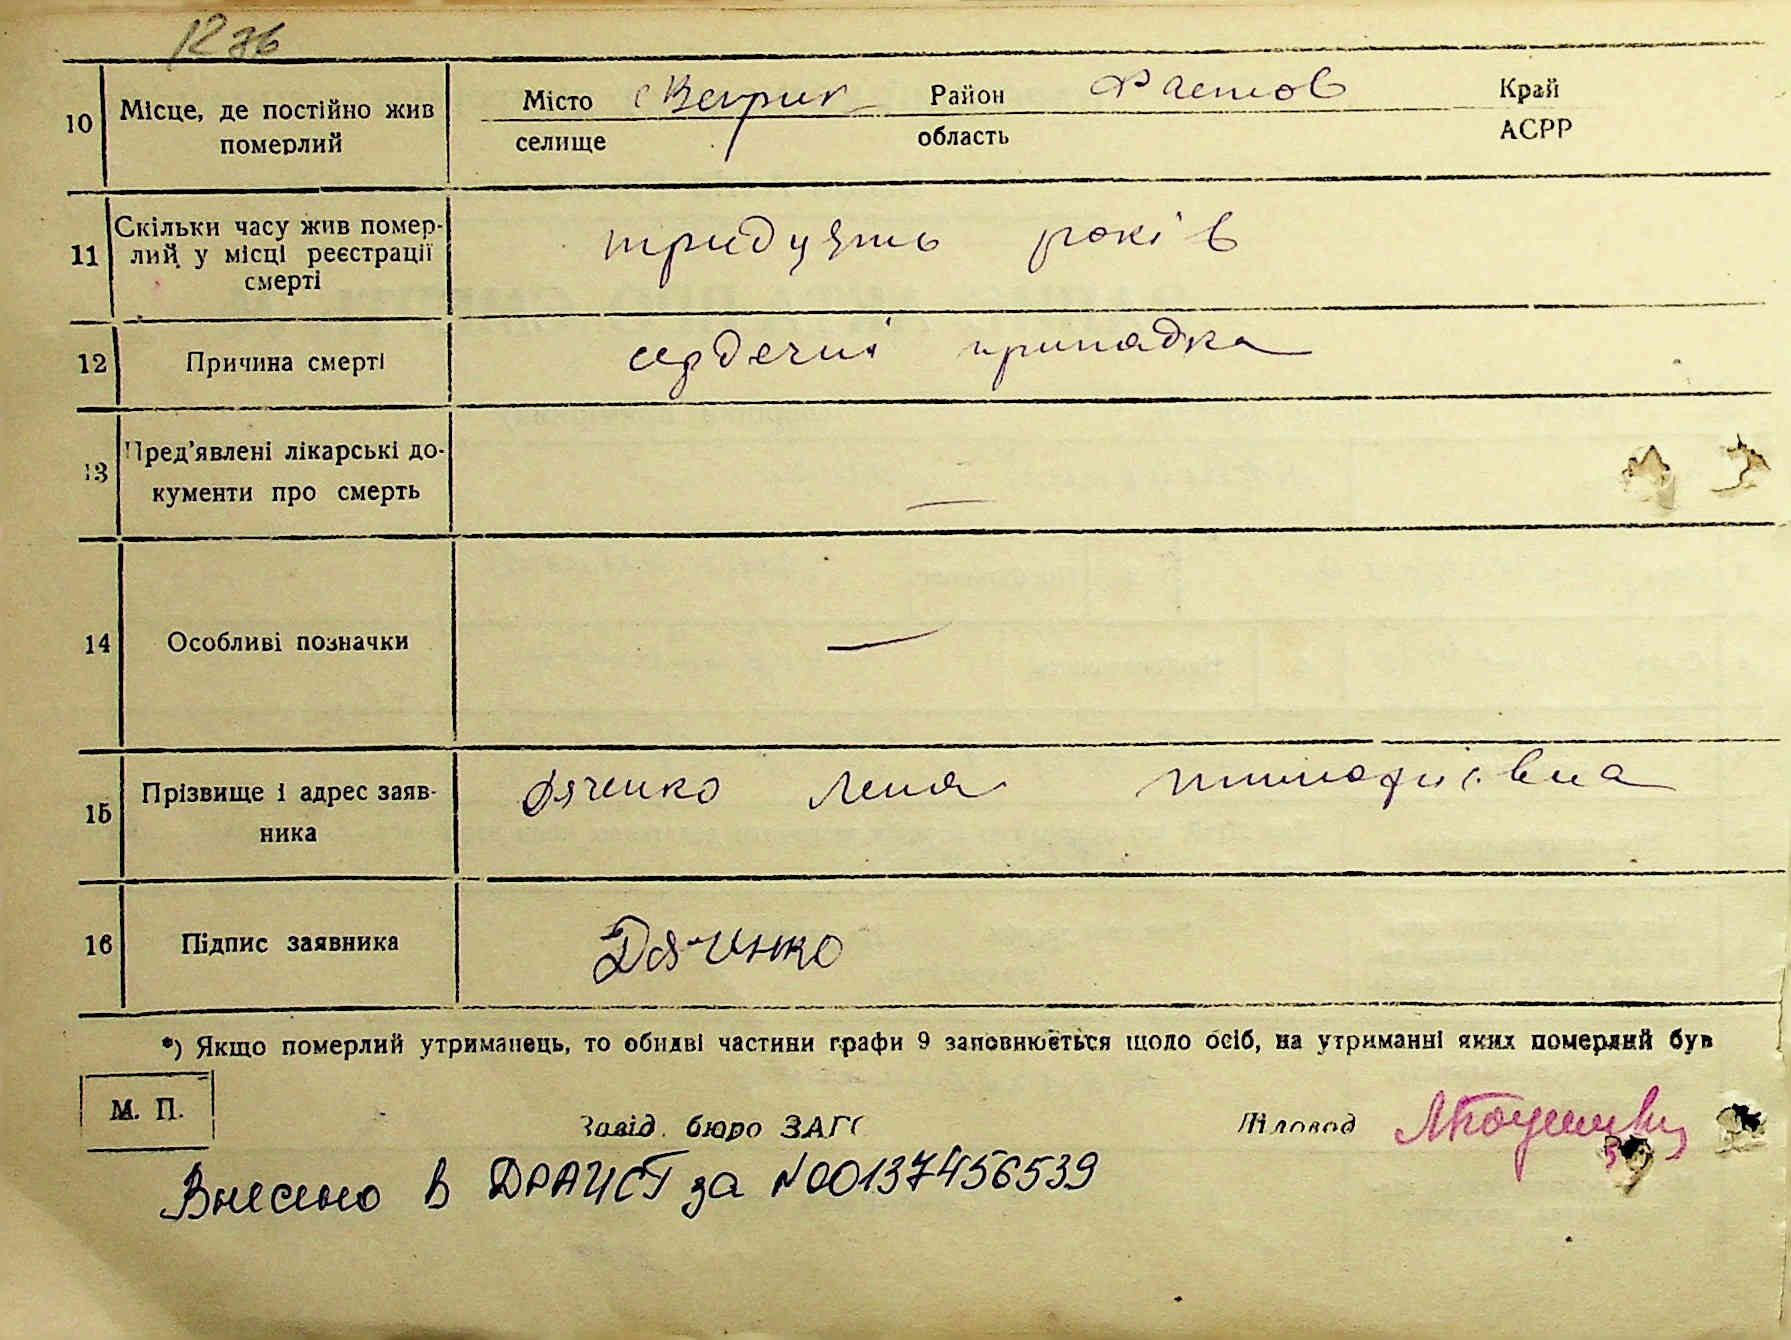 10 Місце, де постійно жив померлий Місто с Веприк Район Фастов Край
селище область АСРР
11 Скільки часу жив помер-
лий у місці реєстрації
смерті
тридцять років
12 Причина смерті сердечні припадка
13 Пред'явлені лікарські до-
кументи про смерть —
14 Особливі позначки —
15 Прізвище і адрес заяв-
ника
Дяченко Лена Тимофіївна
16 Підпис заявника Дяченко
*) Якщо померлий утриманець, то обидві частини графи 9 заповнюється щодо осіб, на утриманні яких померлий був
М. П.
Завід. бюро ЗАГС Діловод
Внесено в ДРАЦСГ за №00137456539